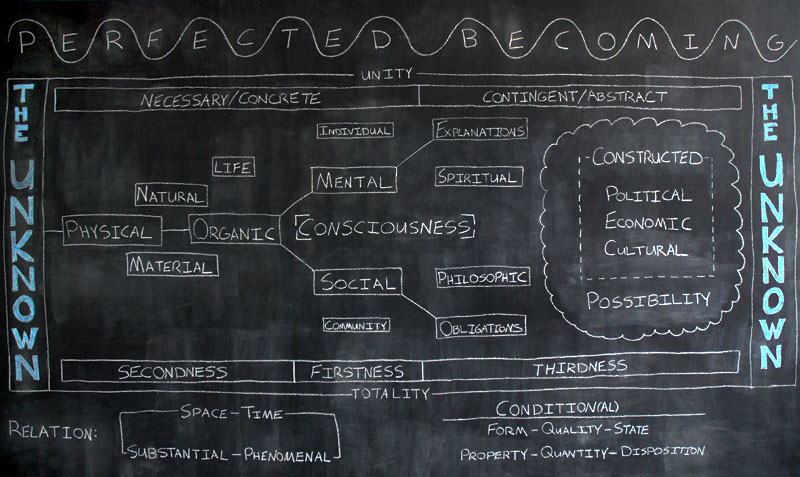 PERFECTED BECOMING
UNITY
THE UNKNOWN
NECESSARY/CONCRETE
CONTINGENT/ABSTRACT
THE UNKNOWN
INDIVIDUAL
EXPLANATIONS
LIFE
MENTAL
SPIRITUAL
NATURAL
PHYSICAL
ORGANIC
[CONSCIOUSNESS]
MATERIAL
SOCIAL
PHILOSOPHIC
COMMUNITY
OBLIGATIONS
CONSTRUCTED
POLITICAL
ECONOMIC
CULTURAL
POSSIBILITY
SECONDNESS
FIRSTNESS
THIRDNESS
TOTALITY
RELATION:
SPACE-TIME
SUBSTANTIAL-PHENOMENAL
CONDITION(AL)
FORM-QUALITY-STATE
PROPERTY-QUANTITY-DISPOSITION